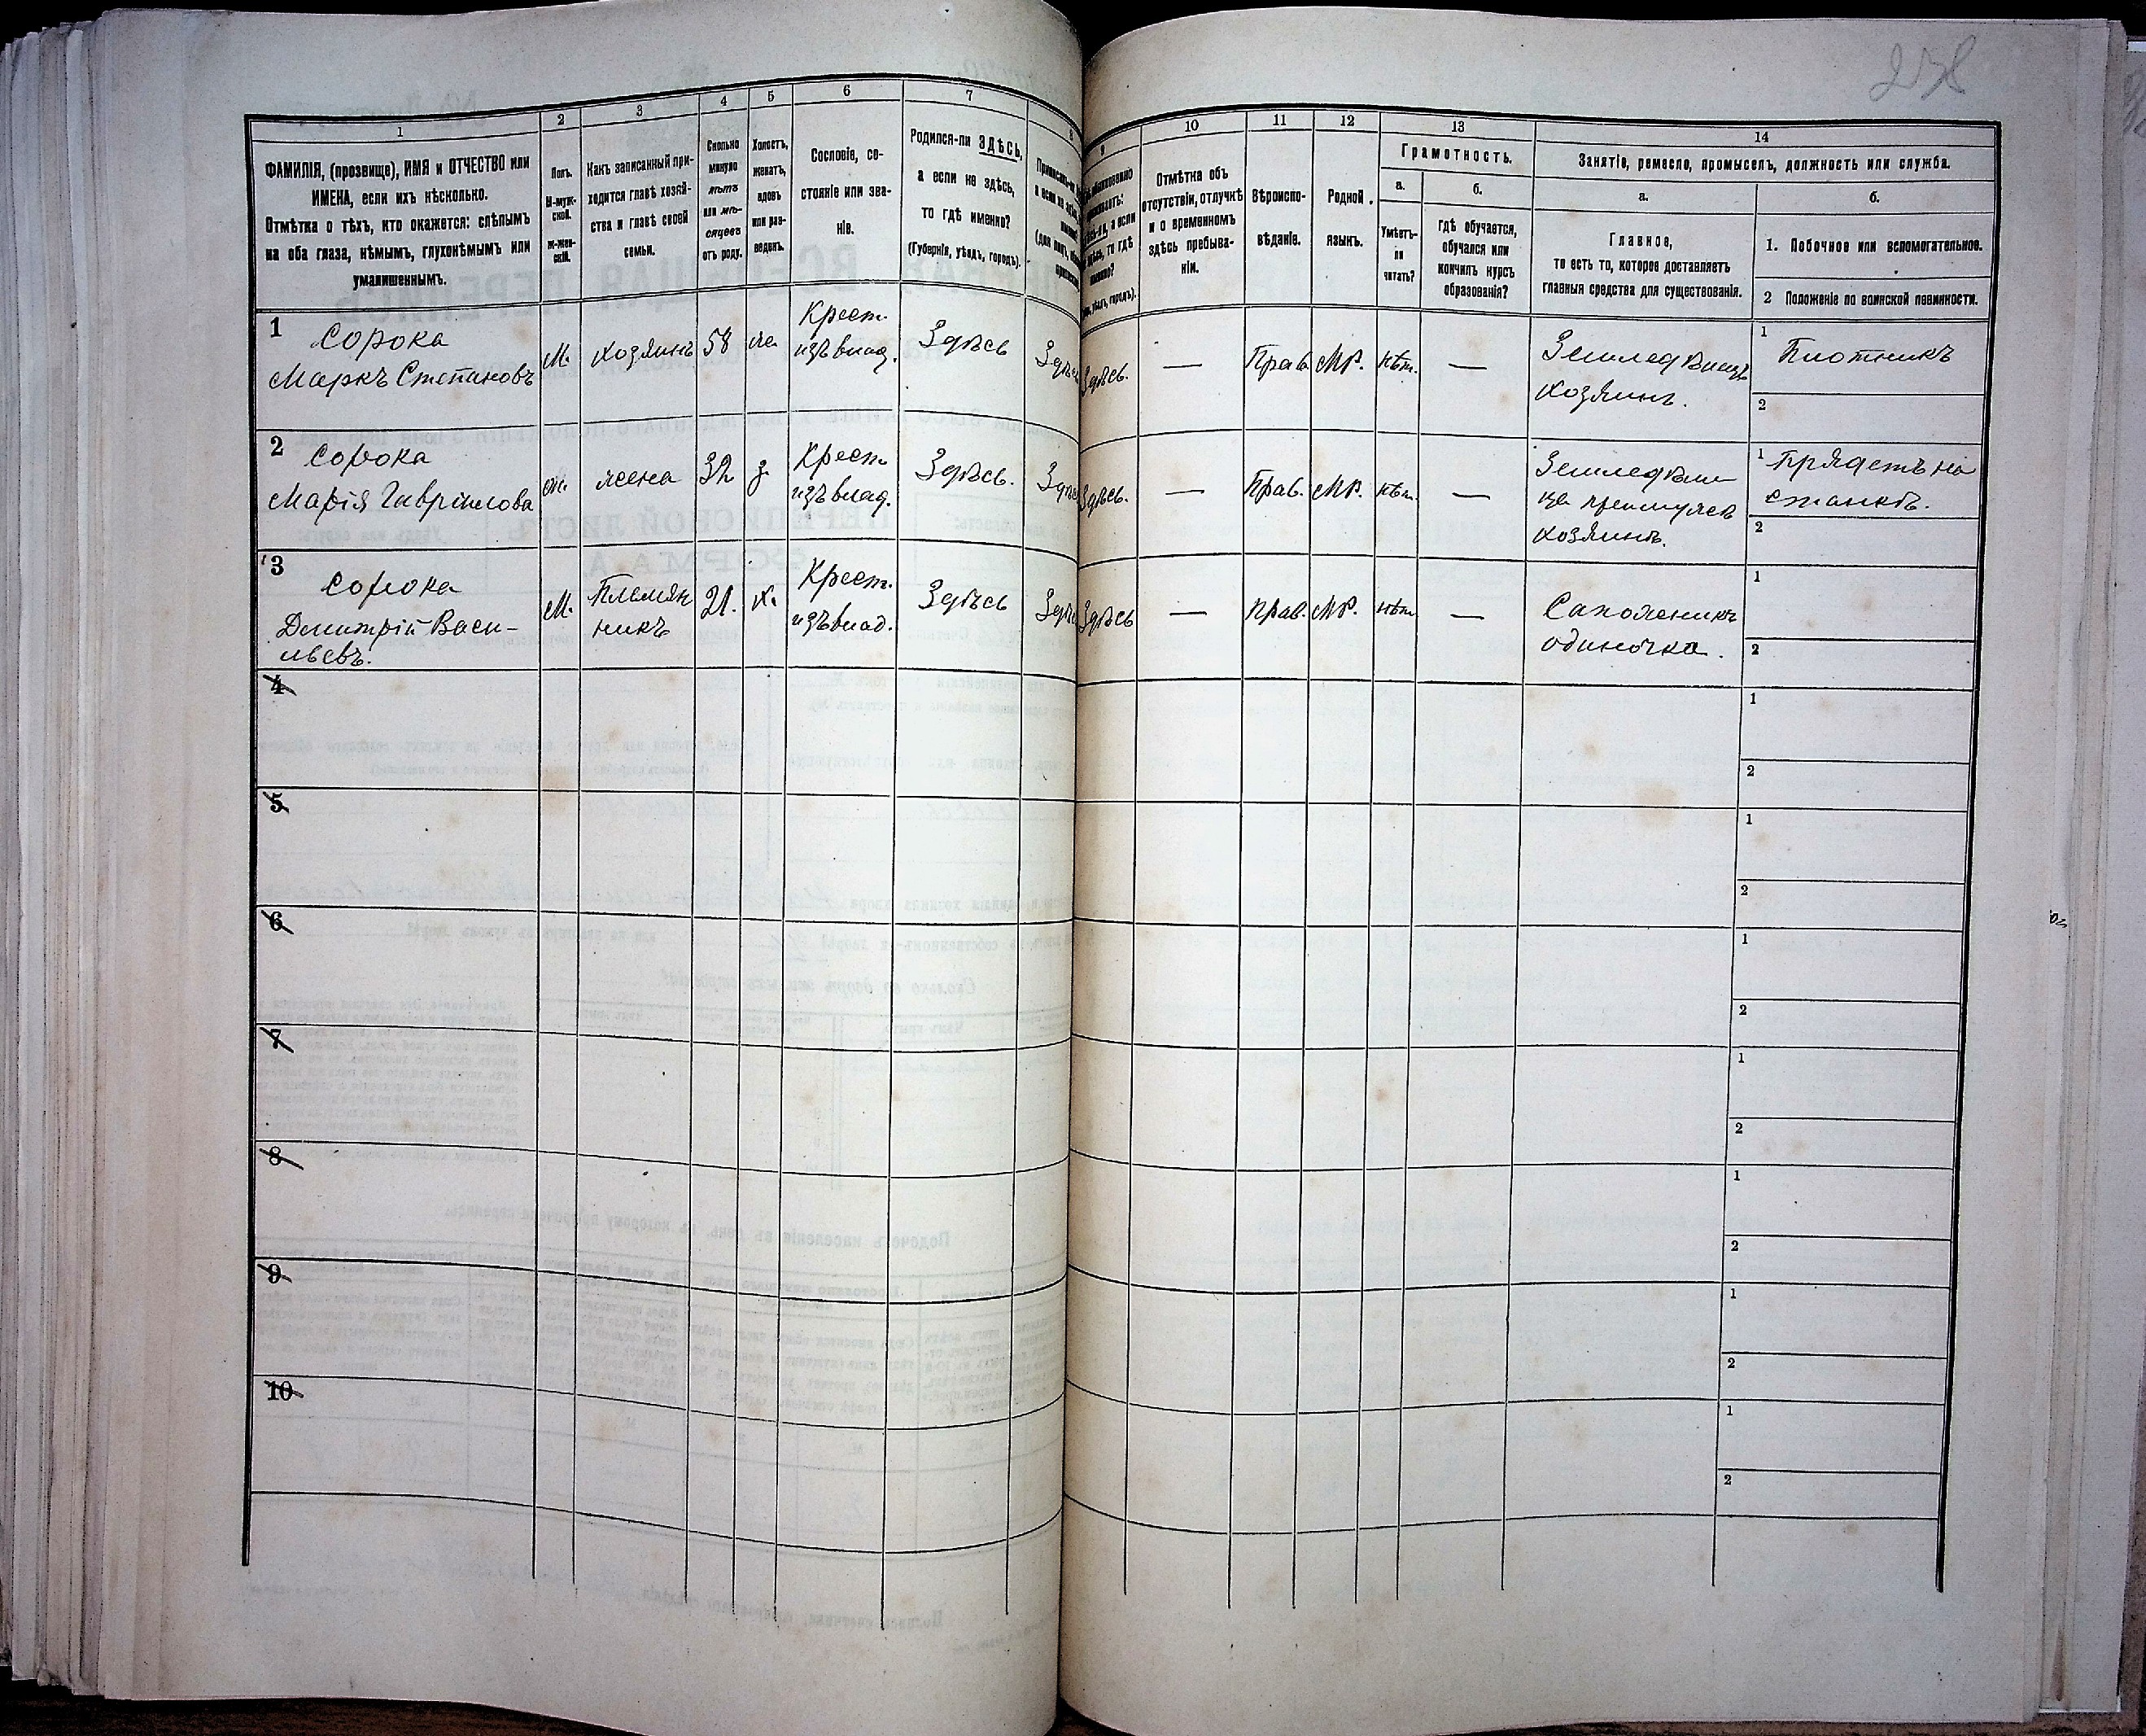 278
1
2
3
4
5
6
7
8
ФАМИЛІЯ, (прозвище), ИМЯ и ОТЧЕСТВО или
ИМЕНА, если ихъ нѣсколько.
Отмѣтка о тѣхъ, кто окажется: слѣпымъ
на оба глаза, нѣмымъ, глухонѣмымъ или
умалишеннымъ.
Полъ.
М-муж-
ской.
Ж-жен-
скій.
Какъ записанный при-
ходится главѣ хозяй-
ства и главѣ своей
семьи.
Сколько
минуло
лѣтъ
или мѣ-
сяцевъ
отъ роду.
Холостъ,
женатъ,
вдовъ
или раз-
веденъ.
Сословіе, со-
стояніе или зва-
ніе.
Родился-ли ЗДѢСЬ,
а если не здѣсь,
то гдѣ именно?
(Губернія, уѣздъ, городъ).
9
10
11
12
13
14
Отмѣтка объ
отсутствіи, отлучкѣ
и о временномъ
здѣсь пребыва-
ніи.
Вѣроиспо-
вѣданіе.
Родной
языкъ.
Грамотность.
а.
б.
Умѣетъ-
ли
читать?
гдѣ обучается,
обучался или
кончилъ курсъ
образованія?
Занятіе, ремесло, промыселъ, должность или служба.
а.
б.
Главное,
то есть то, которое доставляетъ
главныя средства для существованія.
1. Побочное или вспомогательное.
2 Положеніе по воинской повинности.
1 Сорока
Маркъ Степановъ
М.
хозяинъ
58
же
Крест.
изъ влад.
Здѣсь
Здѣсь.
—
Прав
МР.
нѣт.
—
Землед Влад
хозяинъ.
1 Плотникъ
2
2 Сорока
Марія Гаврилова
ж.
жена
32
з.
Крест.
изъ влад.
Здѣсь.
Здѣсь.
—
Прав.
МР.
нѣт.
—
хозяинъ.
1 Прядетъ на
станкѣ.
2
3 Сорока
Дмитрій Васи-
льевъ.
М.
Племян
никъ
21.
х.
Крест.
изъ влад.
Здѣсь
Здѣсь
—
прав.
МР.
нѣт
—
Сапожникъ
одиночка.
1
2
4
1
2
5
1
2
6
1
2
7
1
2
8
1
2
9
1
2
10
1
2